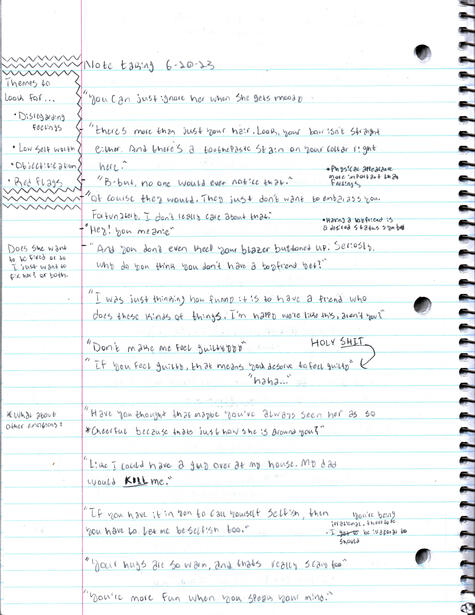 Note taking 6-20-23
Themes to
Look for...
• Disregarding
feelings
• Low self worth
• Objectification
• Red Flags
"You can just ignore her when she gets moody
"There's more than just your hair. Look, your bow isn't straight
either. And there's a toothpaste stain on your collar right
here."
• Physical appearance
more important than
feelings
"B-but, no one would ever notice that."
"Of course they would. They just don't want to embarrass you.
Fortunately, I don't really care about that."
"Hey! You meanie"
• Having a boyfriend is
a desired status symbol
Does she want
to be fixed or do
I just want to
fix her? or both.
"And you don't even keep your blazer buttoned up. Seriously.
Why do you think you don't have a boyfriend yet?"
"I was just thinking how funny it is to have a friend who
does these kinds of things. I'm happy we're like this, aren't you?"
"Don't make me feel guiltyyyy"
HOLY SHIT
"If you feel guilty, that means you deserve to feel guilty"
"haha..."
* What about
other emotions?
"Have you thought that maybe you've always seen her as so
* Cheerful because thats just how she is around you?"
"Like I could have a guy over at my house. My dad
would KILL me."
"If you have it in you to call yourself selfish, then
you have to let me be selfish too."
You're being
irrational, therefore
• I get to be irrational too
should
"Your hugs are so warm, and thats really scary too"
"You're more fun when you speak your mind."